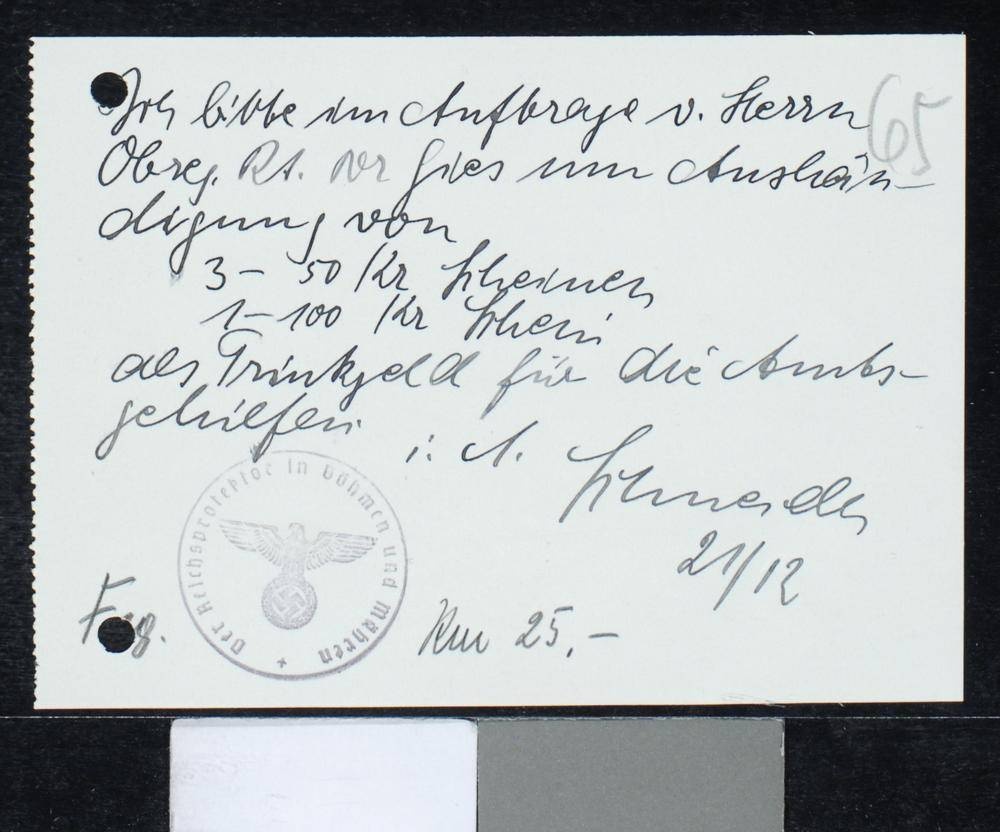 Ich bitte im Auftrage v. Herrn
65
Obreg. Rt. Dr Gies um Aushän-
digung von
3 – 50 Kr Scheinen
1 – 100 Kr Schein
als Trinkgeld für die Amts-
gehilfen.
i. A. Schneider
21/12
Der Reichsprotektor in Böhmen und Mähren
Rm 25,–